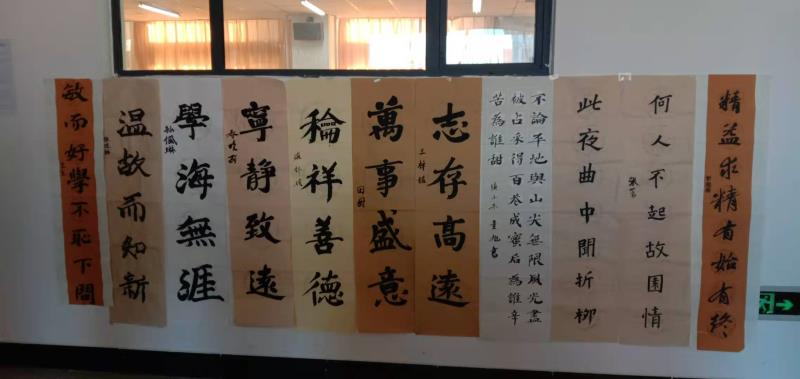 精益求精有始有終
何人不起故園情
此夜曲中聞折柳
不論平地與山尖無限風光盡
被占采得百花成蜜后為誰辛
苦為誰甜
志存高遠
萬事盛意
田樹
稐祥善德
寧靜致遠
學海無涯
溫故而知新
敏而好學不恥下問